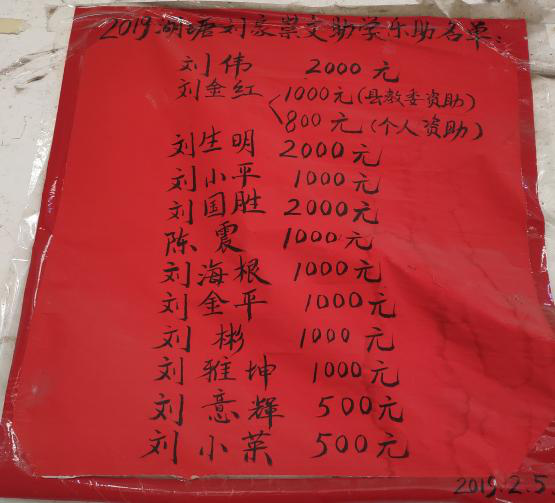 2019湖塘刘家崇文助学乐助名单:
刘伟 2000元
刘金红 1000元(县教委资助)
800元(个人资助)
刘生明 2000元
刘小平 1000元
刘国胜 2000元
陈震 1000元
刘海根 1000元
刘金平 1000元
刘彬 1000元
刘雅坤 1000元
刘意辉 500元
刘小英 500元
2019.2.5